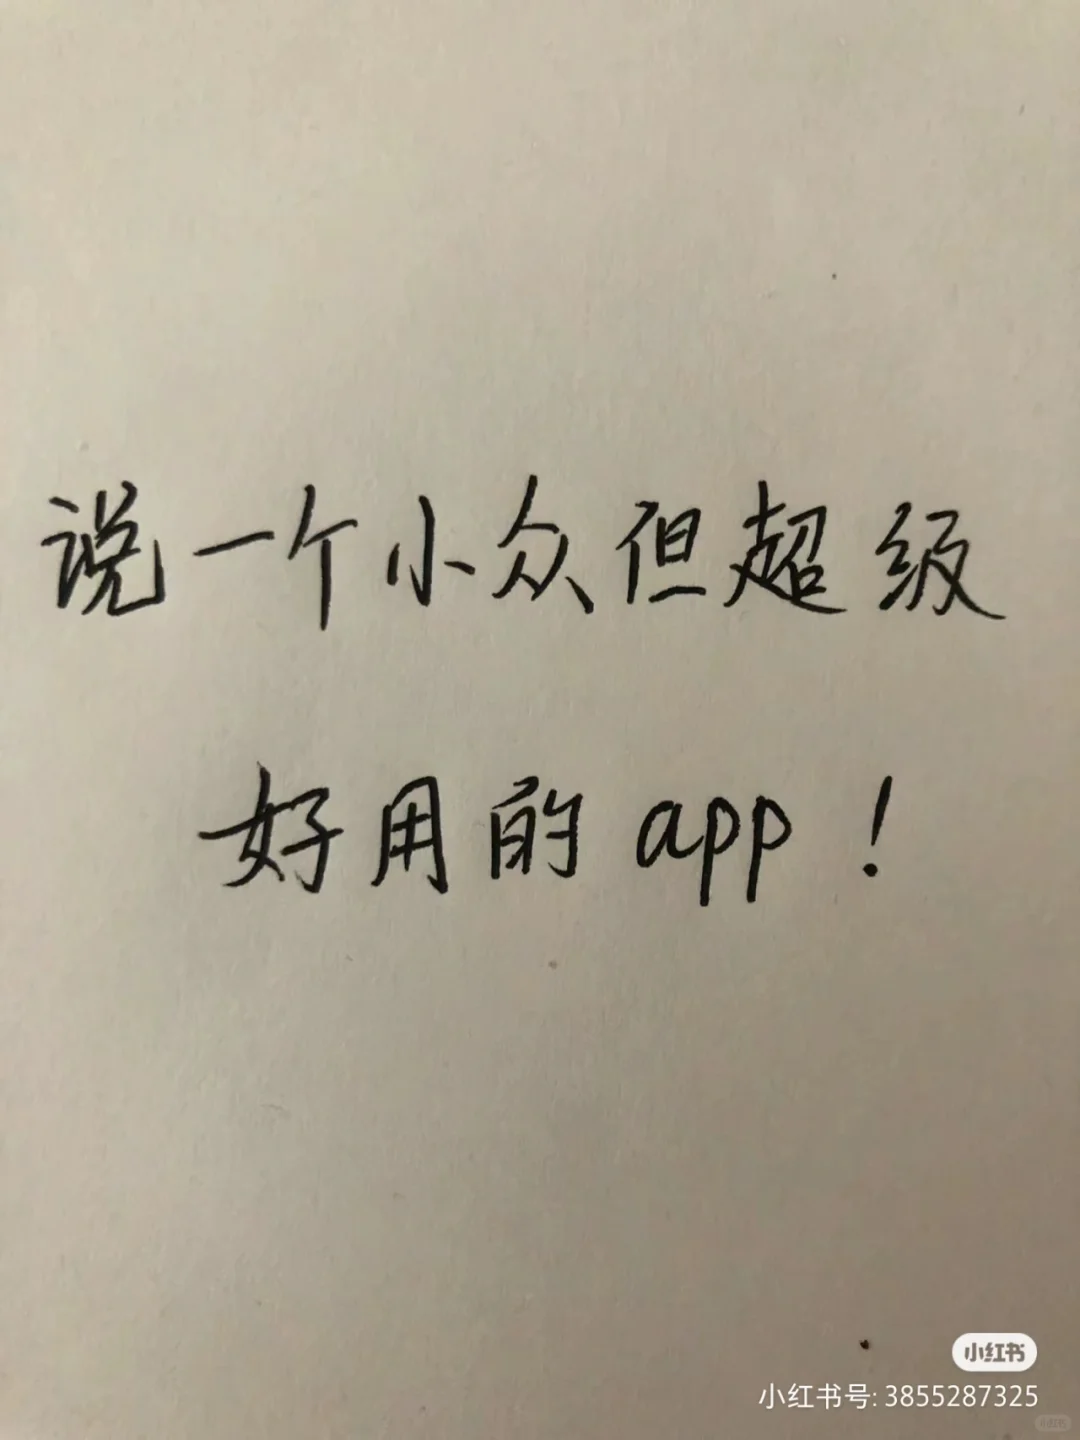 说一个小众但超级
好用的app！
小红书
小红书号: 3855287325
小红书